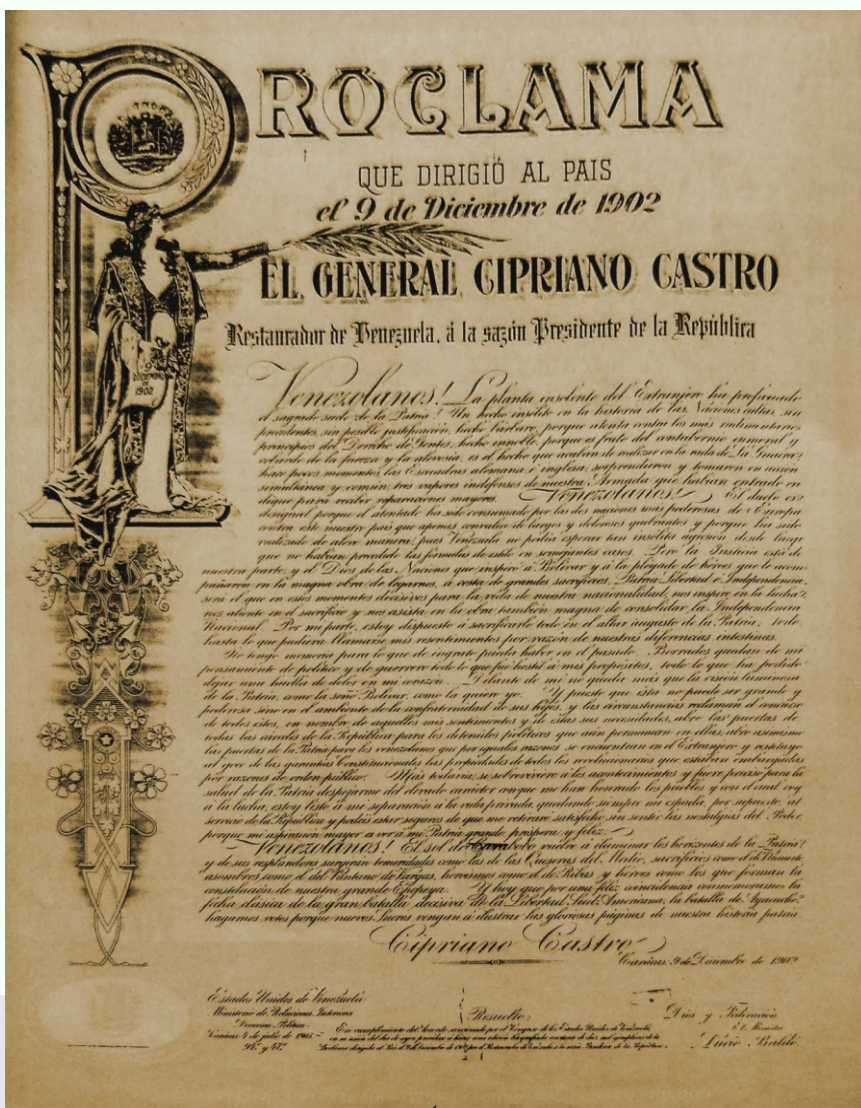 PROCLAMA
QUE DIRIGIÓ AL PAIS
el 9 de Diciembre de 1902
EL GENERAL CIPRIANO CASTRO
Restaurador de Venezuela, á la sazón Presidente de la República
9 DICIEMBRE DE 1902
Venezolanos! La planta insolente del Extranjero ha profanado
el sagrado suelo de la Patria! Un hecho insólito en la historia de las Naciones cultas, sin
precedentes, sin posible justificación, hecho bárbaro, porque atenta contra los más rudimentarios
principios del Derecho de Gentes, hecho innoble, porque es fruto del contubernio inmoral y
cobarde de la fuerza y la alevosía, es el hecho que acaban de realizar en la rada de La Guaira
hace pocos momentos, las Escuadras alemana é inglesa, sorprendieron y tomaron en acción
simultanea y común, tres vapores indefensos de nuestra Armada que habían entrado en
dique para recibir reparaciones mayores. Venezolanos! El duelo es
desigual porque el atentado ha sido consumado por las dos naciones más poderosas de Europa
contra este nuestro país que apenas convalece de largos y dolorosos quebrantos y porque ha sido
realizado de aleve manera, pues Venezuela no podía esperar tan insólita agresión desde luego
que no habían precedido las fórmulas de estilo en semejantes casos. Pero la Justicia está de
nuestra parte, y el Dios de las Naciones que inspiró á Bolívar y á la pléyade de héroes que le acom-
pañaron en la magna obra de legarnos, á costa de grandes sacrificios, Patria, Libertad é Independencia,
será el que en estos momentos decisivos para la vida de nuestra nacionalidad, nos inspire en la lucha,
nos aliente en el sacrificio y nos asista en la obra también magna de consolidar la Independencia
Nacional. Por mi parte, estoy dispuesto á sacrificarlo todo en el altar augusto de la Patria; todo,
hasta lo que pudiera llamarse mis resentimientos por razón de nuestras diferencias intestinas.
No tengo memoria para lo que de ingrato pueda haber en el pasado. Borrados quedan de mi
pensamiento de político y de guerrero todo lo que fué hostil á mis propósitos, todo lo que ha podido
dejar una huella de dolor en mi corazón. Delante de mí no queda más que la visión luminosa
de la Patria, como la soñó Bolívar, como la quiero yo. Y puesto que ésta no puede ser grande y
poderosa sino en el ambiente de la confraternidad de sus hijos, y las circunstancias reclaman el concurso
de todos éstos, en nombre de aquellos mis sentimientos y de estas sus necesidades, abro las puertas de
todas las cárceles de la República para los detenidos políticos que aún permanecen en ellas; abro asimismo
las puertas de la Patria para los venezolanos que por iguales razones se encuentran en el Extranjero y restituyo
al goce de las garantías Constitucionales las propiedades de todos los revolucionarios que estaban embargadas
por razones de orden público. Más todavía: si sobreviviere á los acontecimientos y fuere preciso para la
salud de la Patria despojarme del elevado carácter conque me han honrado los pueblos y con el cual voy
á la lucha, estoy listo á mi separación á la vida privada quedando siempre mi espada, por supuesto, al
servicio de la República y podéis estar seguros de que me retiraré satisfecho sin sentir las nostalgias del Poder,
porque mi aspiración mayor es ver á mi Patria grande, próspera y feliz.
Venezolanos! El sol de Carabobo vuelve á iluminar los horizontes de la Patria
y de sus resplandores surgirán temeridades como las de las Queseras del Medio, sacrificios como el de Ricaurte,
asombros como el del Pantano de Vargas, heroísmo como el de Ribas y héroes como los que forman la
constelación de nuestra grande Epopeya. Y hoy que por una feliz coincidencia conmemoramos la
fecha clásica de la gran batalla decisiva de la Libertad Sud-Americana, la batalla de Ayacucho,
hagamos votos porque nuevos Sucres vengan á ilustrar las gloriosas páginas de nuestra historia patria.
Cipriano Castro
Carácas: 9 de Diciembre de 1902
Estados Unidos de Venezuela
Ministerio de Relaciones Interiores
Dirección Política
Carácas: 4 de julio de
y 47º
Resuelto:
En cumplimiento del Acuerdo sancionado por el Congreso de los Estados Unidos de Venezuela,
en su sesión del día de ayer procédase á hacer una edición litografiada de diez mil ejemplares de la
Dios y Federación
El Ministro
Lucio Baldó